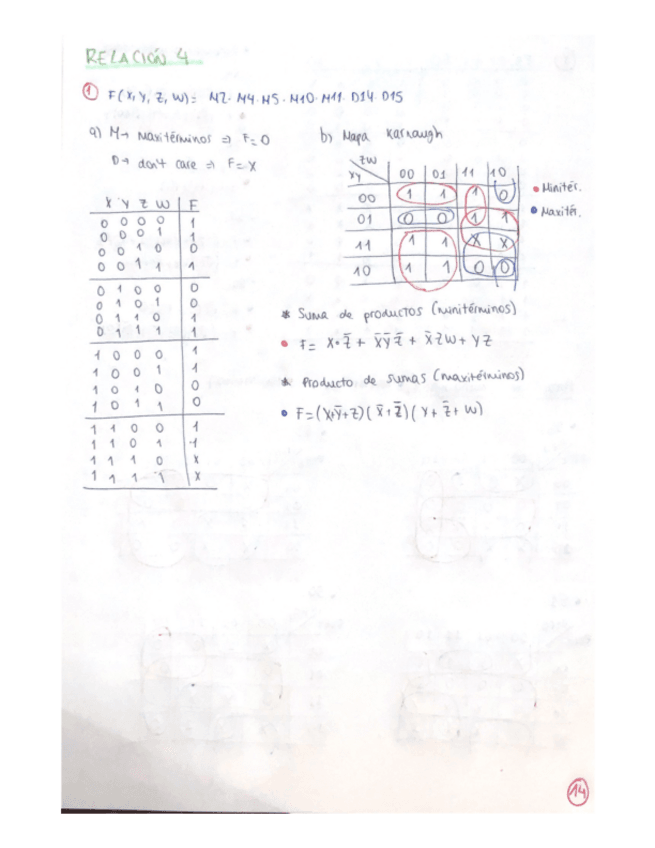 RELACIÓN 4
1 F(X, Y, Z, W) = M2 · M4 · M5 · M10 · M11 · D14 · D15
a) M → Maxitérminos ⇒ F=0
D → don't care ⇒ F=X
b) Mapa Karnaugh
X Y Z W F
0 0 0 0 1
0 0 0 1 1
0 0 1 0 0
0 0 1 1 1
0 1 0 0 0
0 1 0 1 0
0 1 1 0 1
0 1 1 1 1
1 0 0 0 1
1 0 0 1 1
1 0 1 0 0
1 0 1 1 0
1 1 0 0 1
1 1 0 1 1
1 1 1 0 X
1 1 1 1 X
ZW
XY 00 01 11 10
00 1 1 1 0
01 0 0 1 1
11 1 1 X X
10 1 1 0 0
• Minitér.
• Maxitér.
* Suma de productos (minitérminos)
• F = X·Z̄ + X̄ȲZ̄ + X̄ZW + YZ
* Producto de sumas (maxitérminos)
• F=(X+Ȳ+Z)(X̄+Z̄)(Y+Z̄+W)
14